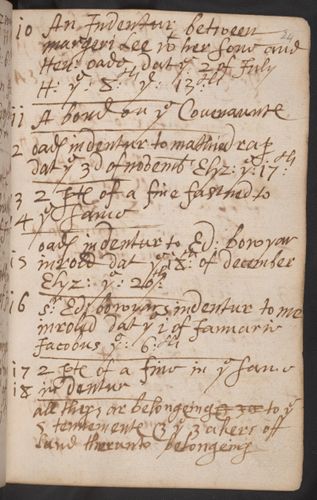 24
10 An Indentur between
margeri Lee to her sone and
Hen: oads dat ye 2 of July
H: ye 8th ye 13th
11 A bond on ye Covenaunte
2 oads indentur to
dat ye 3d of Eliz: ye 17th
3 2 ptes of a fine fastned to
4 ye same
oads indentur to Ed: bowyar
15 inrold dat ye 18th of december
Elyz: ye 26th
16 sr Ed: bowyars indentur to me
inrowld dat ye 1 of Januarie
Jacobus ye: 6th
17 2 pte of a fine in ye same
18 indentur
all thes ar belongeing to ye
5 tenements & ye 3 akers off
land therunto belongeing